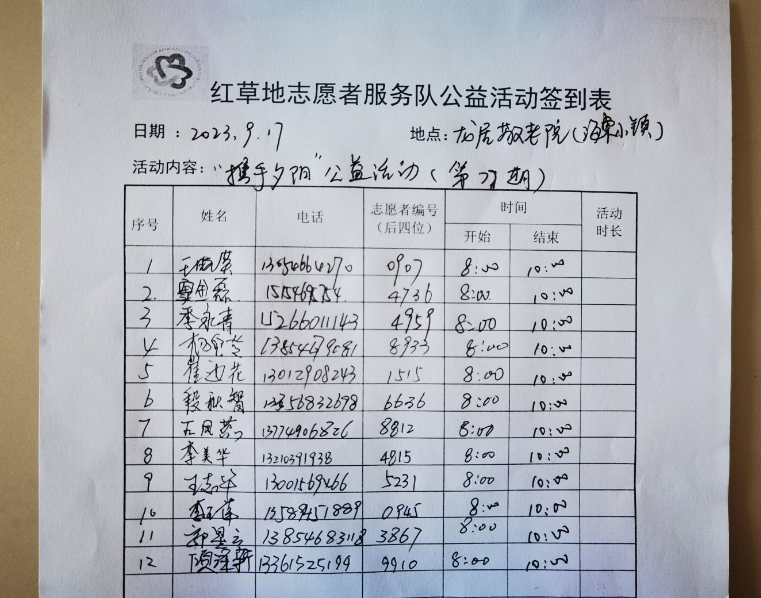 红草地志愿者服务队公益活动签到表
日期：2023.9.17 地点：龙居敬老院（海棠小镇）
活动内容："携手夕阳"公益活动（第 期）
序号 姓名 电话 志愿者编号（后四位） 时间 活动时长
开始 结束
1 13054664270 0907 8:00 10:00
2. 4736 8:00 10:00
3 李永青 15266011143 4959 8:00 10:00
4 8933 8:00 10:00
5 崔迎花 13012908243 1515 8:00 10:00
6 段秋智 6636 8:00 10:00
7 13774906826 8812 8:00 10:00
8 李美华 13210391938 4815 8:00 10:00
9 王志华 13001569466 5231 8:00 10:00
10 0945 8:00 10:00
11 13854683118 3867 8:00 10:00
12 13361525199 9910 8:00 10:00